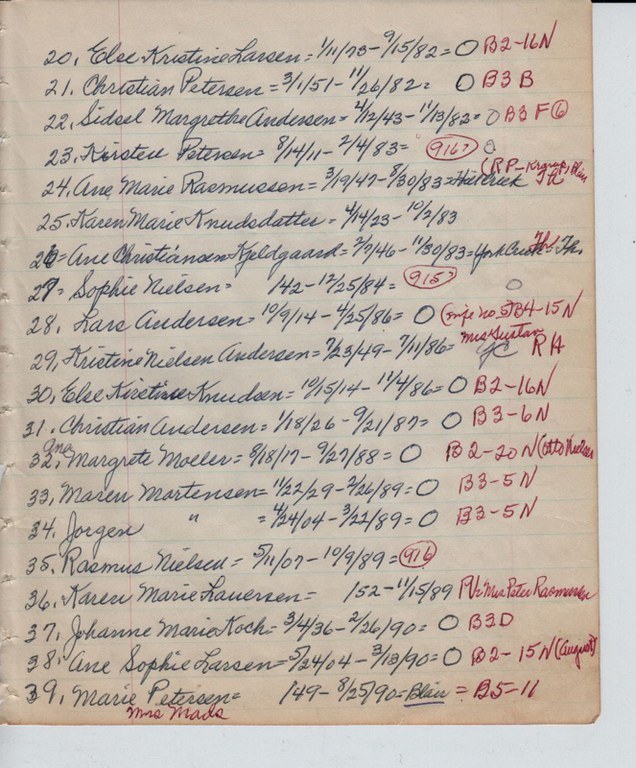 20. Else Kristine Larsen = 1/11/73 - 9/15/82 = O B2-16N
21. Christian Petersen = 3/1/51 - 11/26/82 = O B3 B
22. Sidsel Margrethe Andersen = 2/12/43 - 11/13/82 = O B3 F 6
23. Kirsten Petersen = 8/14/11 - 2/4/83 = 916?
24. Ane Marie Rasmussen = 3/19/47 - 8/30/83 = (RP-
25. Karen Marie Knudsdatter = 4/14/23 - 10/2/83
26 = Ane Christiansen Kjeldgaard = 2/7/46 - 11/30/83 = York Creek
27 = Sophie Nielsen = 142 - 12/25/84 = 915? O
28. Lars Andersen = 10/9/14 - 4/25/86 = O B4-15N
29. Kristine Nielsen Andersen = 7/23/49 - 7/11/86 = Mrs Gustav RA
30. Else Kirstine Knudsen = 10/15/14 - 11/4/86 = O B2-16N
31. Christian Andersen = 1/18/26 - 9/21/87 = O B3-6N
32. Ane Margrete Moeler = 8/18/17 - 9/27/88 = O B2-20N (Otto Nielsen
33. Maren Mortensen = 11/22/29 - 2/26/89 = O B3-5N
34. Jorgen " = 4/24/04 - 3/22/89 = O B3-5N
35. Rasmus Nielsen = 5/11/07 - 10/9/89 = 916
36. Karen Marie Lauersen = 152 - 11/15/89 Mrs Peter Rasmussen
37. Johanne Marie Koch = 3/4/36 - 2/26/90 = O B3D
38. Ane Sophie Larsen = 5/24/04 - 3/13/90 = O B2-15N (August)
39. Marie Petersen = 149 - 8/25/90 = Blair = B5-11
Mrs Mads